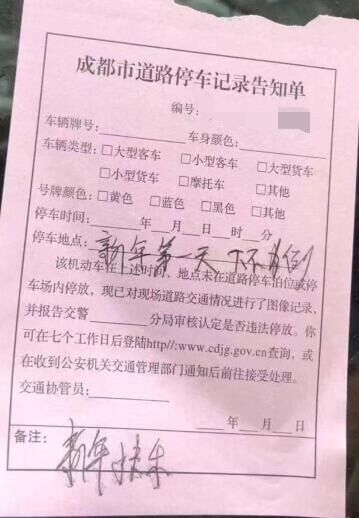 成都市道路停车记录告知单
编号:
车辆牌号:________ 车身颜色:________
车辆类型: □大型客车 □小型客车 □大型货车
□小型货车 □摩托车 □其他
号牌颜色: □黄色 □蓝色 □黑色 □其他
停车时间:____年__月__日__时__分
停车地点: 新年第一天 下不为例
该机动车在上述时间、地点未在道路停车泊位或停
车场内停放,现已对现场道路交通情况进行了图像记录,
并报告交警________分局审核认定是否违法停放。你
可在七个工作日后登陆http//:www.cdjg.gov.cn查询,或
在收到公安机关交通管理部门通知后前往接受处理。
交通协管员:________
____年__月__日
备注:
新年快乐